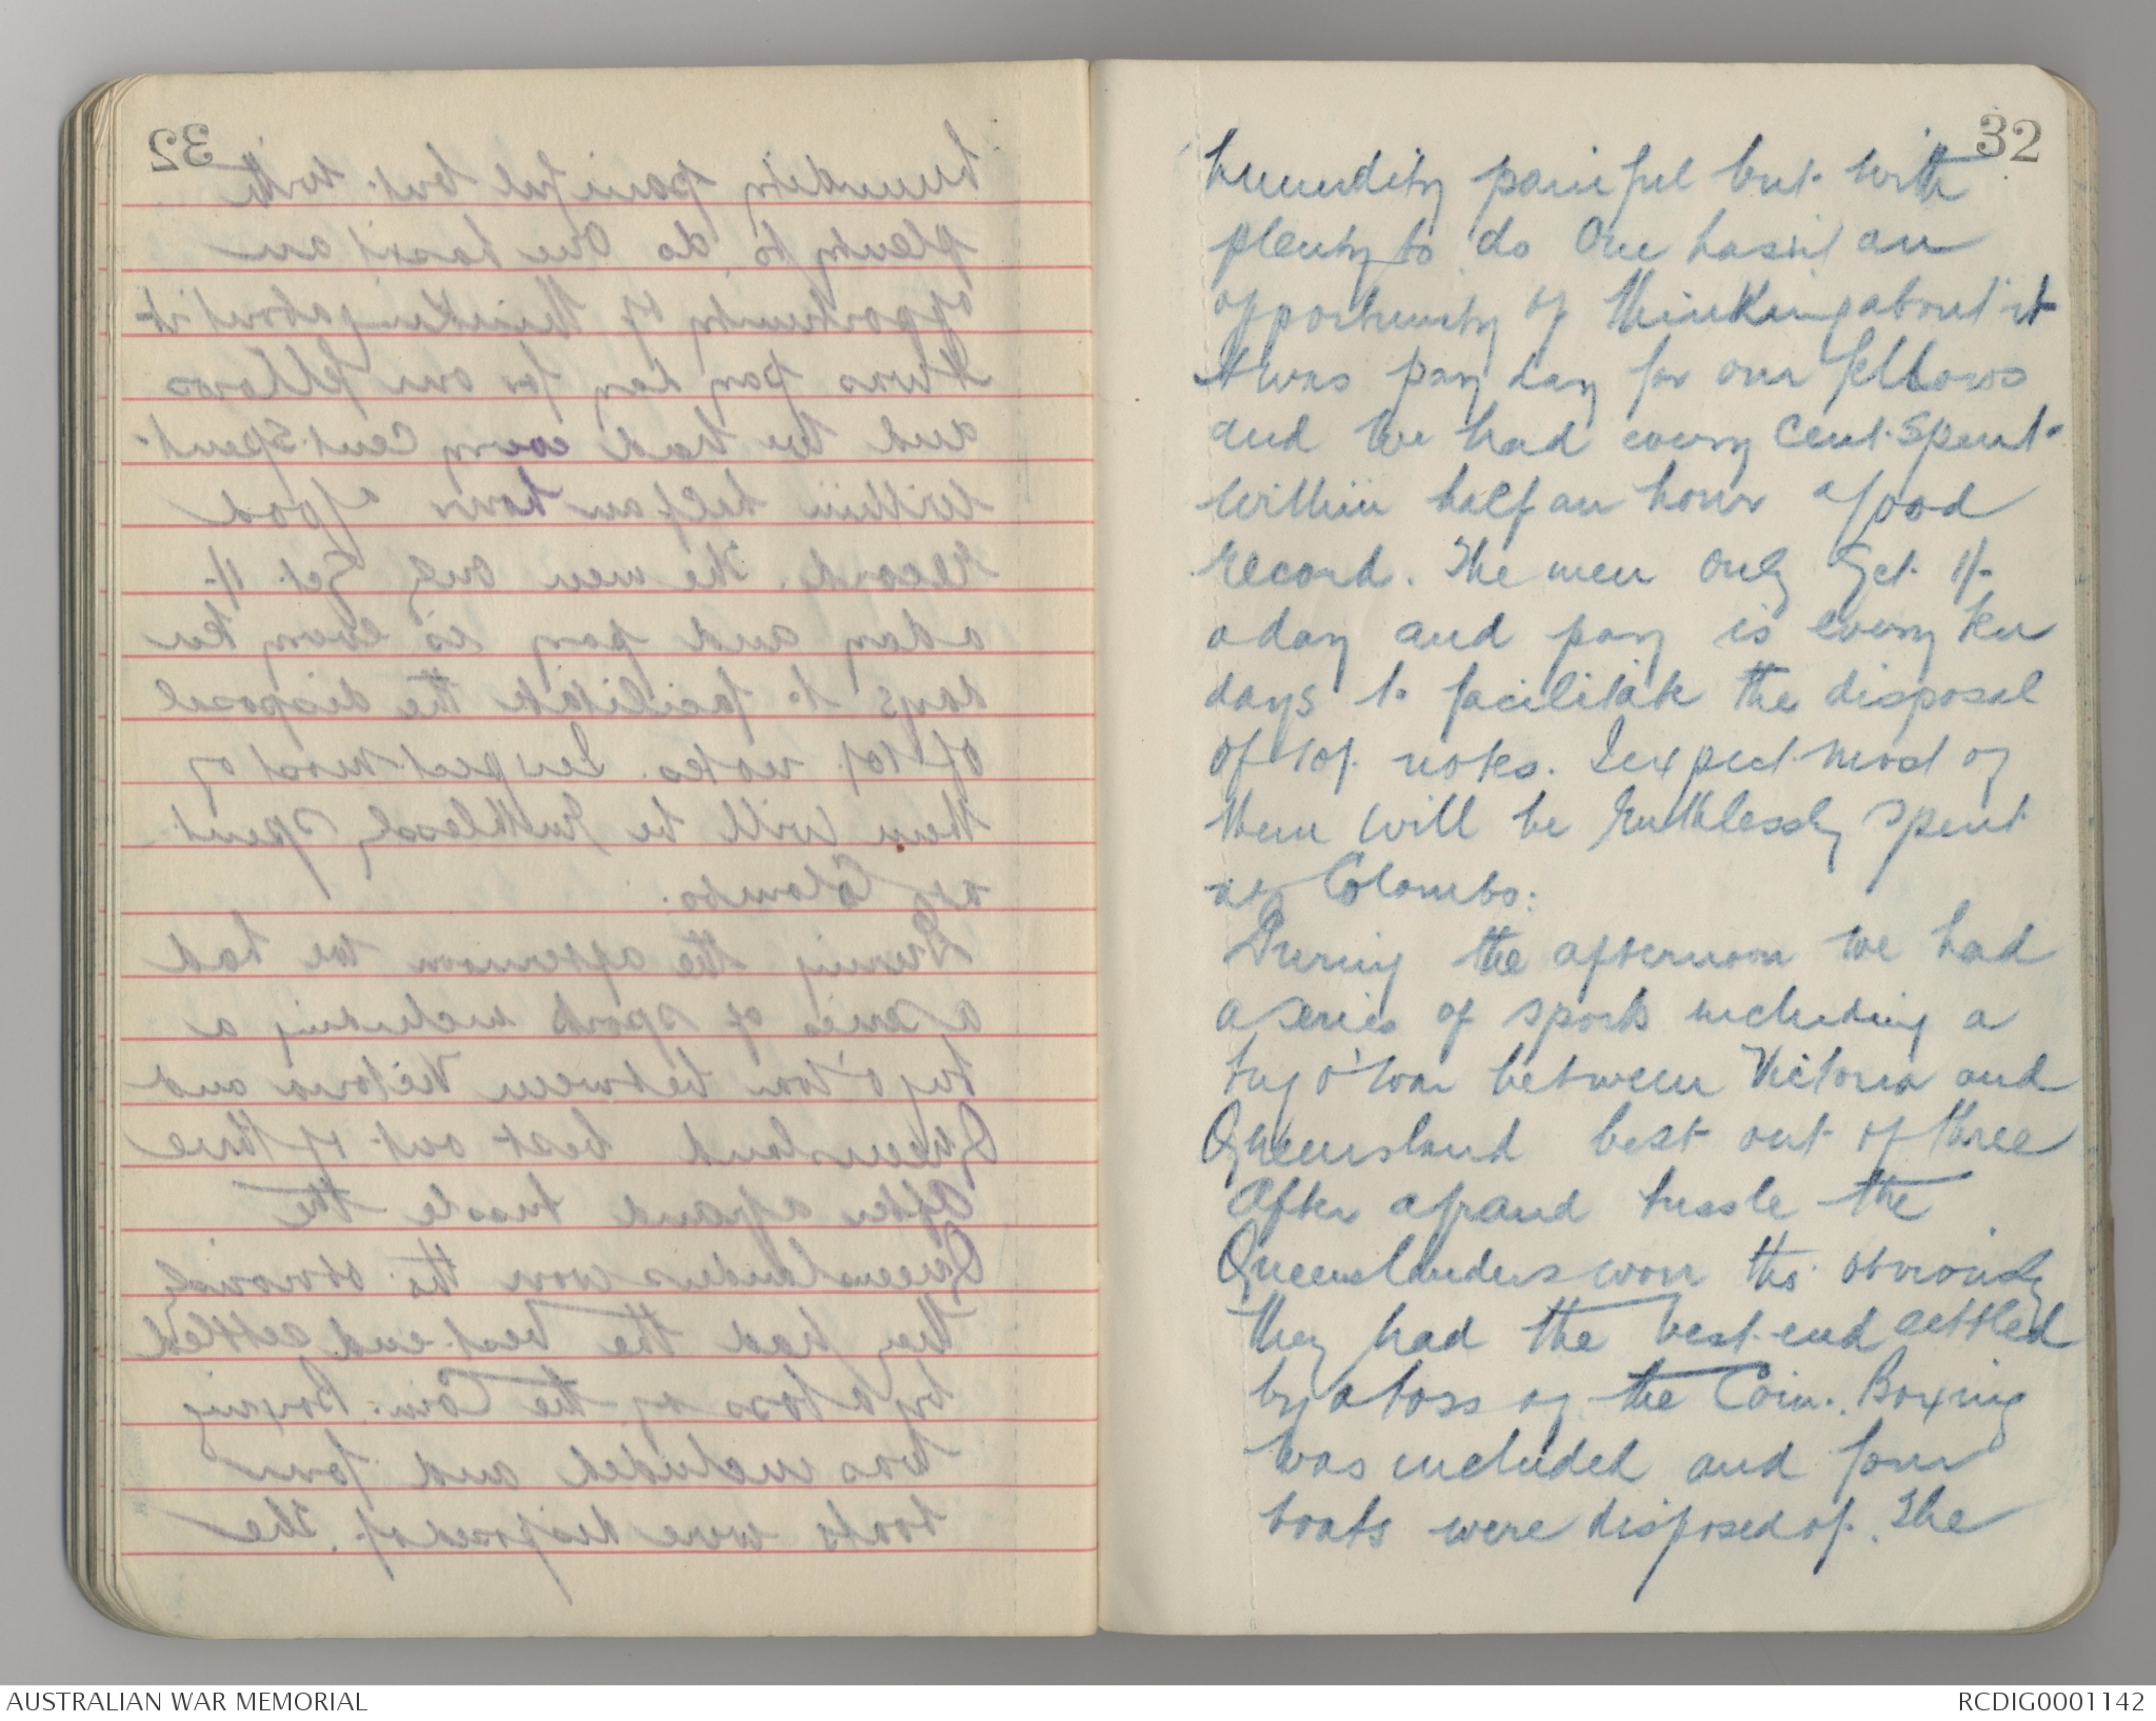 32
humidity painful but with
plenty to do One hasn't an
opportunity of thinking about it
It was pay day for our fellows
and we had every cent spent
within half an hour a good
record. The men only get 1/-
a day and pay is every ten
days to facilitate the disposal
of 10/- notes. I expect most of
them will be ruthlessly spent
at Colombo.
During the afternoon we had
a series of sports including a
tug o' war between Victoria and
Queensland best out of three
After a grand tussle the
Queenslanders won tho' obviously
they had the best end settled
by a toss of the Coin. Boxing
was included and four
bouts were disposed of. The
AUSTRALIAN WAR MEMORIAL
RCDIG0001142